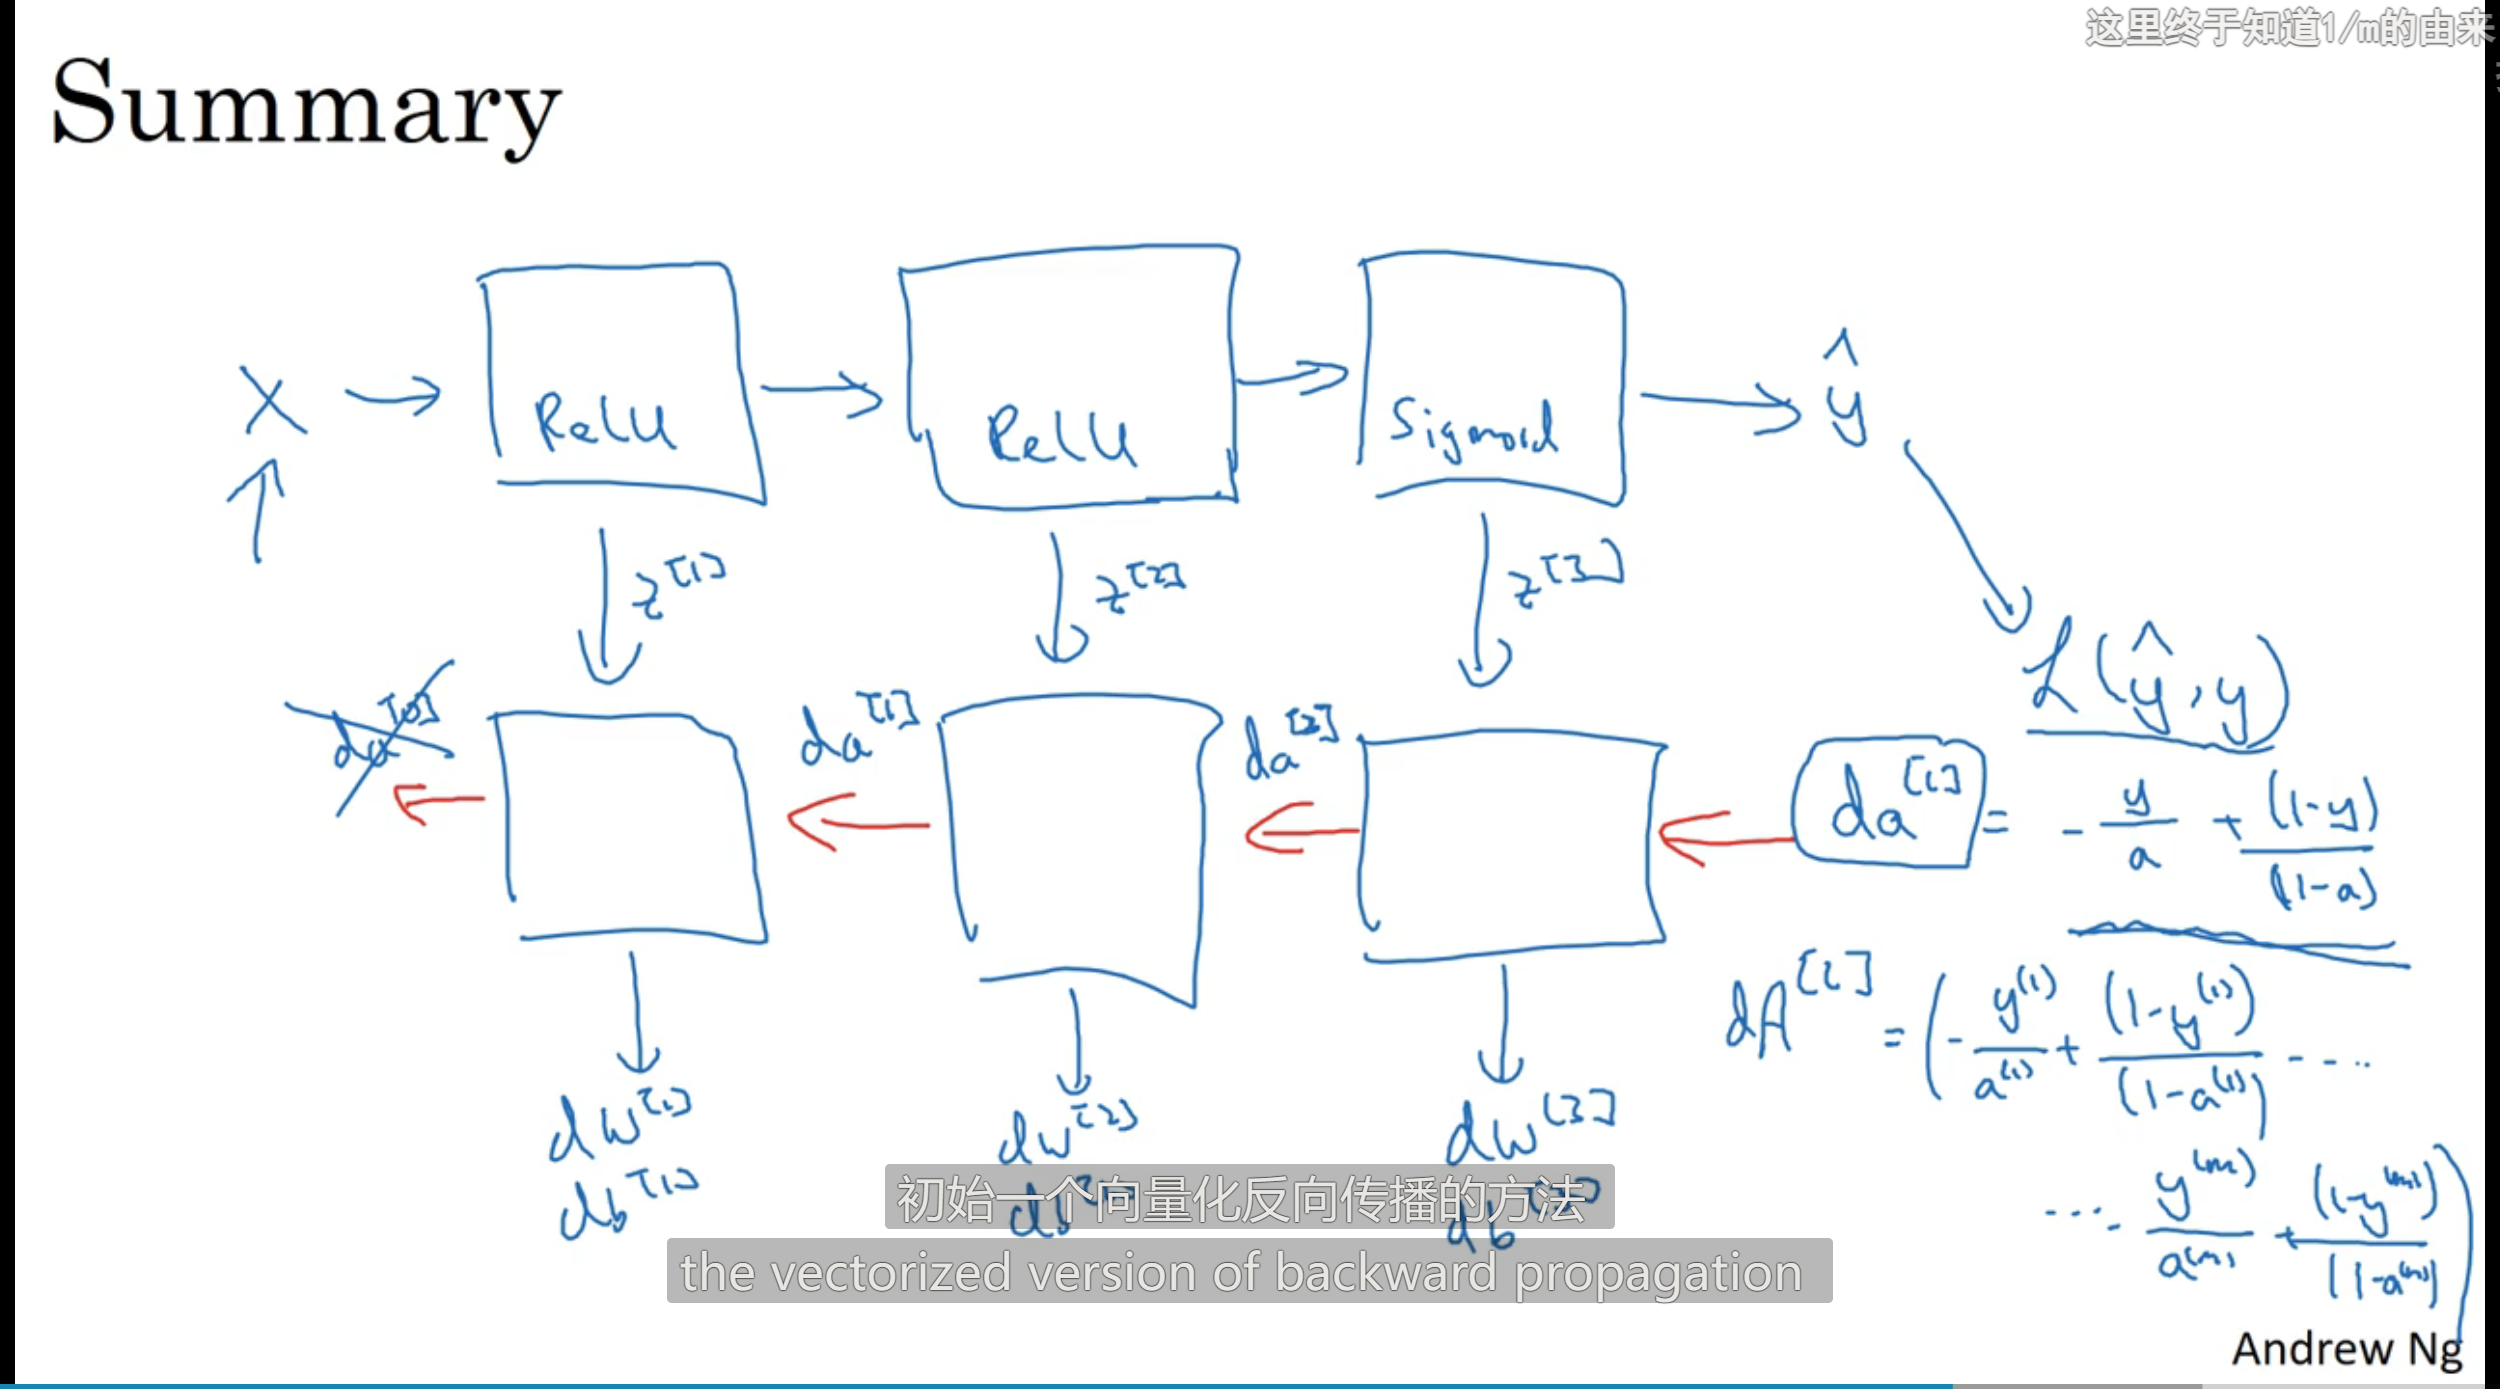 这里终于知道1/m的由来
Summary
X → ReLU → ReLU → Sigmoid → ŷ
z^[1] z^[2] z^[3]
L(ŷ, y)
da^[0] da^[1] da^[2] da^[L] = - y/a + (1-y)/(1-a)
dA^[L] = (- y^(1)/a^(1) + (1-y^(1))/(1-a^(1)) ....
dw^[1] dw^[2] dw^[3]
db^[1] db^[2] db^[3]
.... y^(m)/a^(m) + (1-y^(m))/(1-a^(m)))
初始一个向量化反向传播的方法
the vectorized version of backward propagation
Andrew Ng